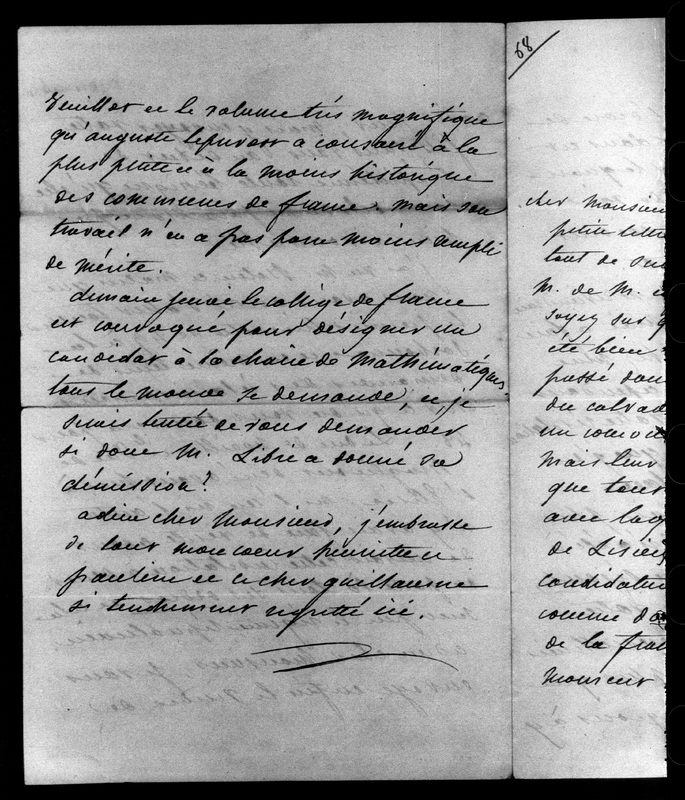 Veuillot et le volume très magnifique
qu'auguste leprevost a consacré à la
plus petite et à la moins historique
des communes de france. mais son
travail n'en a pas pour moins rempli
de mérite.
demain jeudi le collége de france
est convoqué pour désigner un
candidat à la chaire de Mathématiques
tout le monde se demande, et je
serais tentée de vous demander
si donc M. Libri a donné sa
démission?
adieu cher Monsieur, j'embrasse
de tout mon coeur henriette
pauline et ce cher guillaume
si tendrement regretté ici.
68
cher Monsieur
petite lettre
tout de
M. de M.
soyez sur
été bien
passé dans
du calvad
un
Mais leur
que tout
avec
de Lisieu
candidature
comme
de la fran
Monsieur